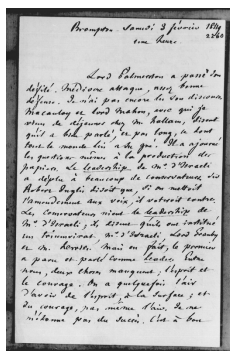 Brompton Samedi 3 février 1849
2260
une heure
Lord Palmerston a passé son
défilé. Médiocre attaque, assez bonne
défense. Je n'ai pas encore lu son discours.
Macaulay et lord Mahon, avec qui je
viens de déjeuner chez M. Hallam, disent
qu'il a bien parlé, et pas long, ce dont
tout le monde lui a su gré. Il a ajourné
les questions mêmes à la production des
papiers. Le leadership de Mr d'Israeli
a déplu à beaucoup de conservateurs. Sir
Robert Inglis disoit que, si on mettoit
l'amendement aux voix, il voteroit contre.
Les conservateurs nient le leadership de
Mr d'Israeli; ils disent qu'ils ont institué
un triumvirat, Mr d'Israeli, Lord Granby
et M. Herries. Mais en fait, le premier
a paru et parlé comme leader. Entre
nous, deux choses manquent, l'esprit et
le courage. On a quelquefois l'air
d'avoir de l'esprit à la surface; et
du courage, pas même l'air. Je ne
m'étonne pas du succès. C'est à bon